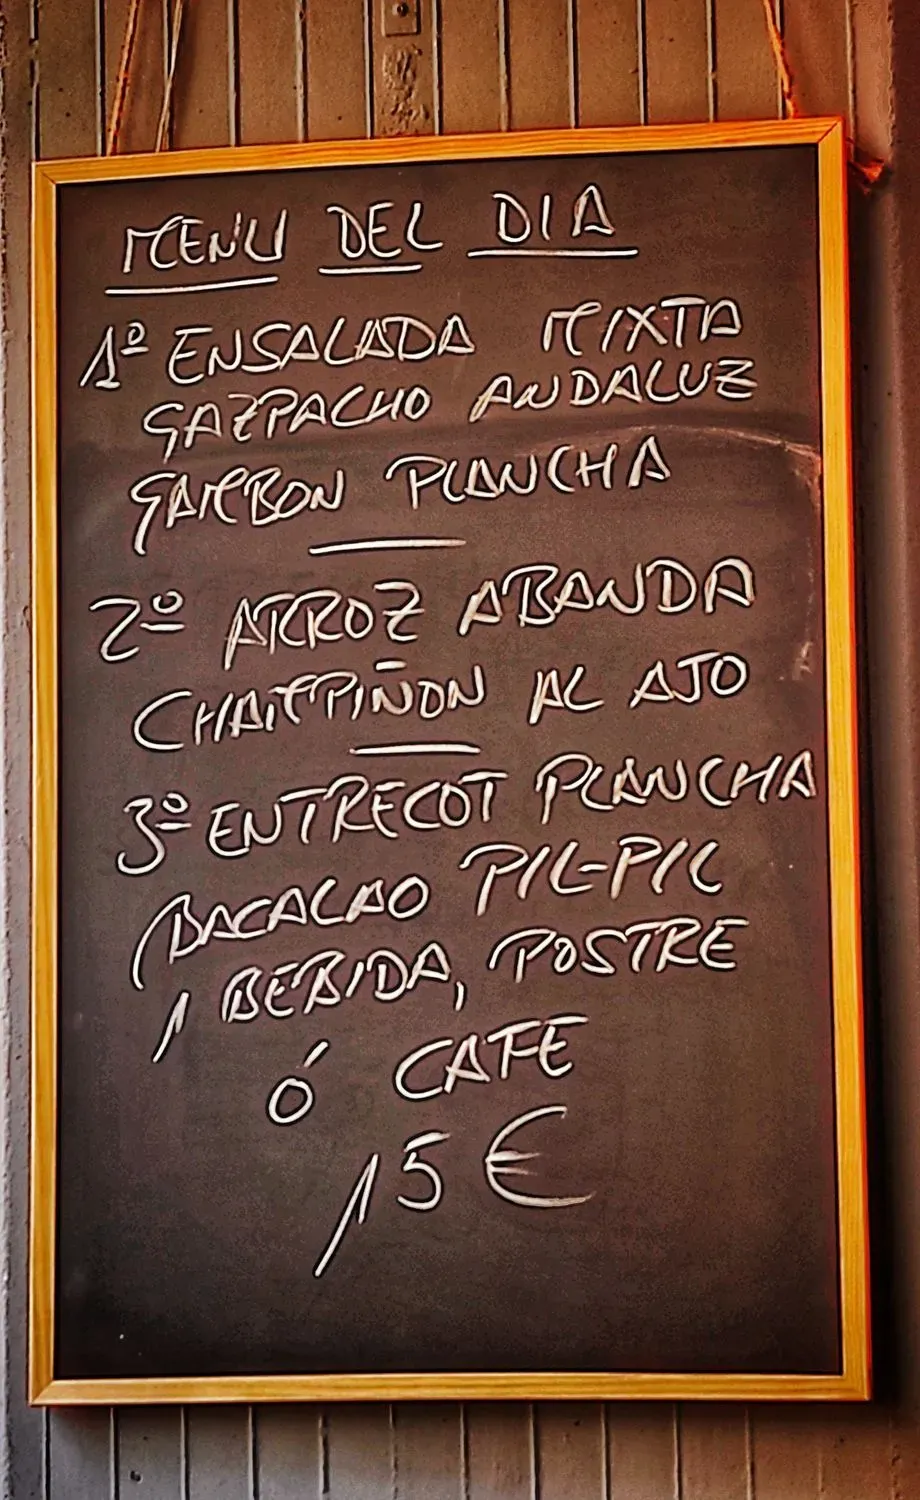 MENU DEL DIA
1º ENSALADA MIXTA
GAZPACHO ANDALUZ
GAMBON PLANCHA
2º ARROZ ABANDA
CHAMPIÑON AL AJO
3º ENTRECOT PLANCHA
BACALAO PIL-PIL
1 BEBIDA, POSTRE
Ó CAFE
15 €